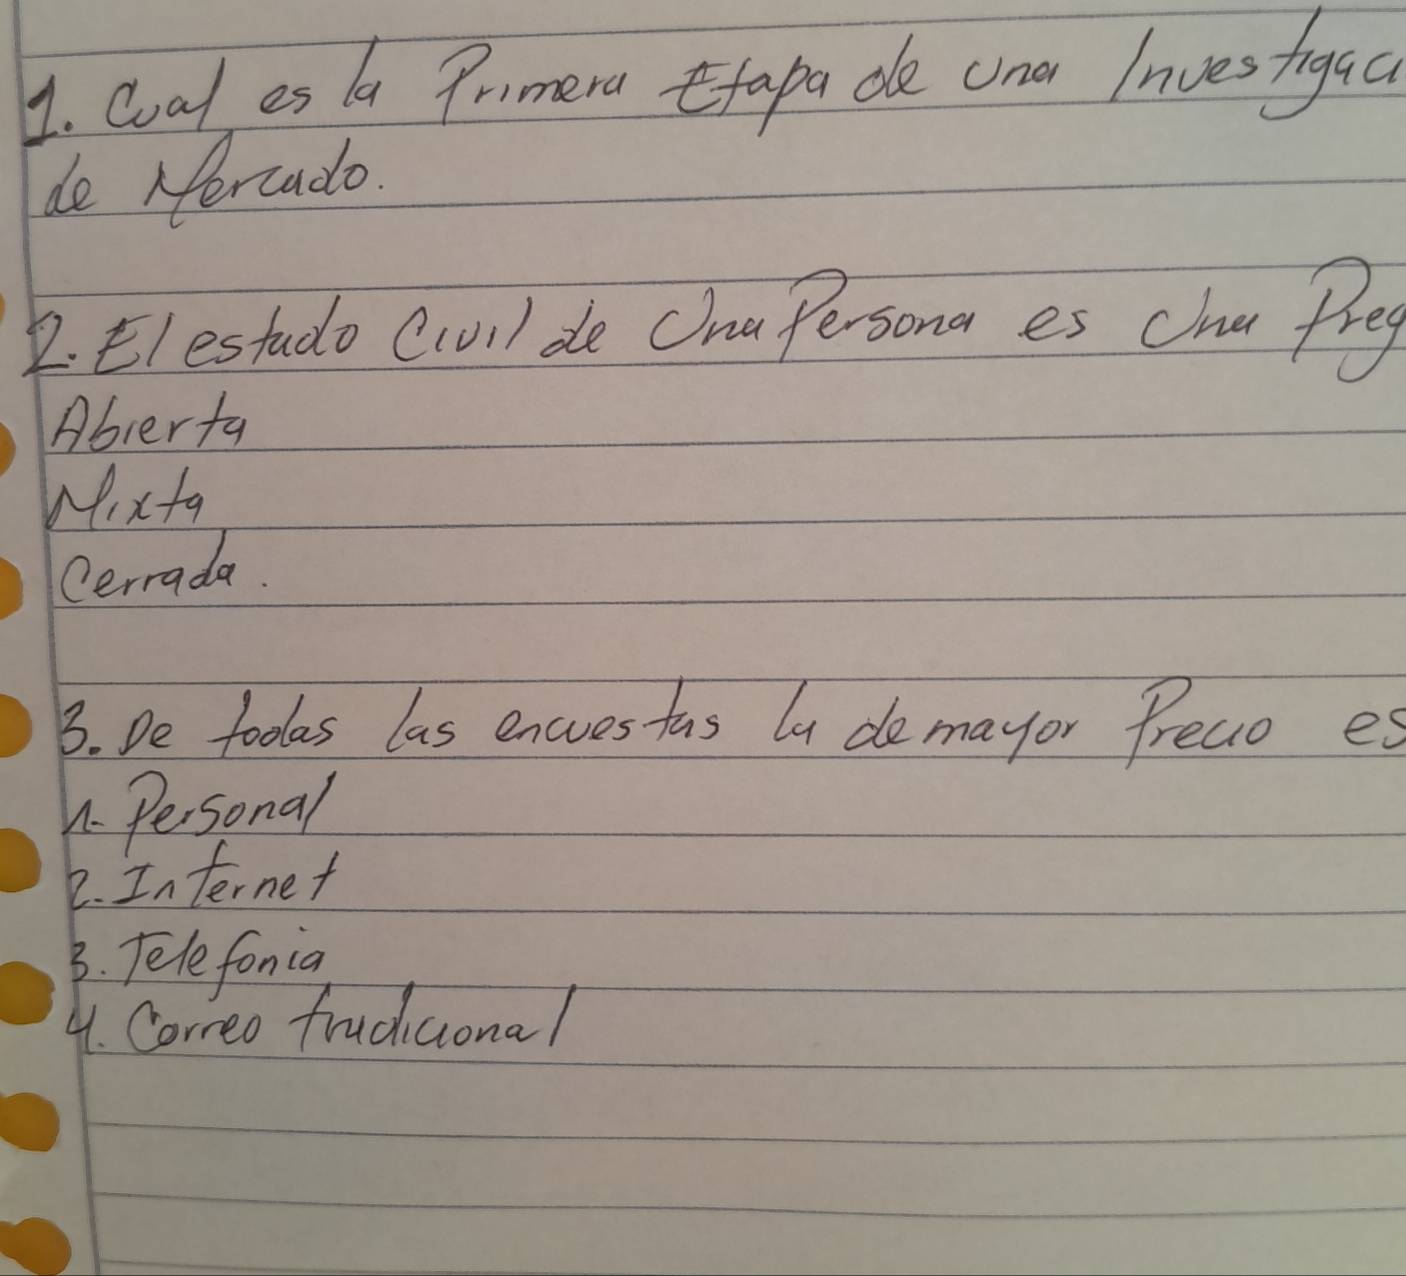 1. Cual es la Primera Etapa de una Investigac
de Mercado.
2. El estado Civil de Una Persona es Una Preg
Abierta
Mixta
Cerrada.
3. De todas las encuestas la de mayor Precio es
1. Personal
2. Internet
3. Telefonia
4. Correo tradicional